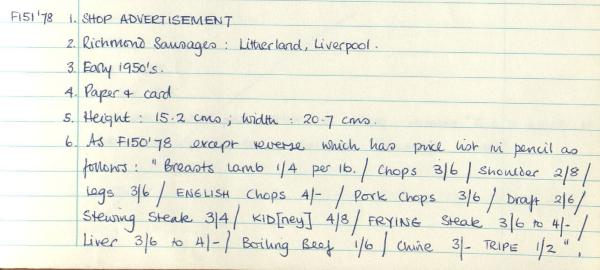 F151'78 1. SHOP ADVERTISEMENT
2. Richmond Sausages : Litherland, Liverpool.
3. Early 1950's.
4. Paper & card
5. Height : 15.2 cms ; width : 20.7 cms.
6. As F150'78 except reverse which has price list in pencil as
follows : "Breasts lamb 1/4 per lb. / Chops 3/6 / Shoulder 2/8 /
legs 3/6 / ENGLISH Chops 4/- / Pork Chops 3/6 / Draft 2/6 /
Stewing Steak 3/4 / KID[ney] 4/8 / FRYING Steak 3/6 to 4/- /
Liver 3/6 to 4/- / Boiling Beef 1/6 / Chine 3/- TRIPE 1/2 ".